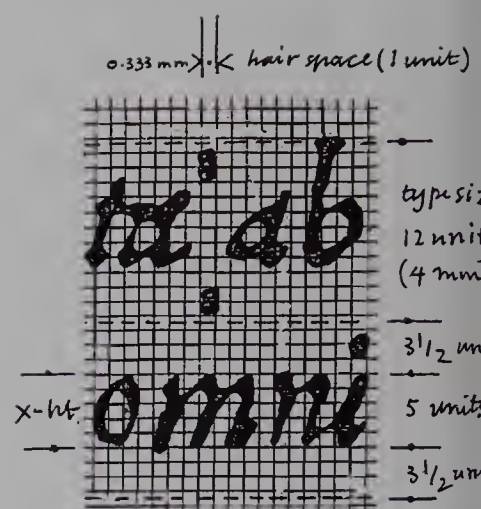 0.333 mm hair space (1 unit)
ab
type siz
12 unit
(4 mm
3 1/2 un
omni
x-ht.
5 units
3 1/2 un